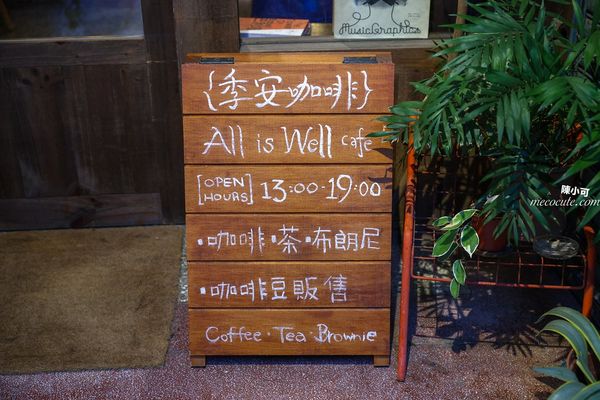 MusicGraphics
{季安咖啡}
All is Well cafe
[OPEN HOURS] 13:00-19:00
·咖啡·茶·布朗尼
·咖啡豆販售
Coffee·Tea·Brownie
陳小可
mecocute.com